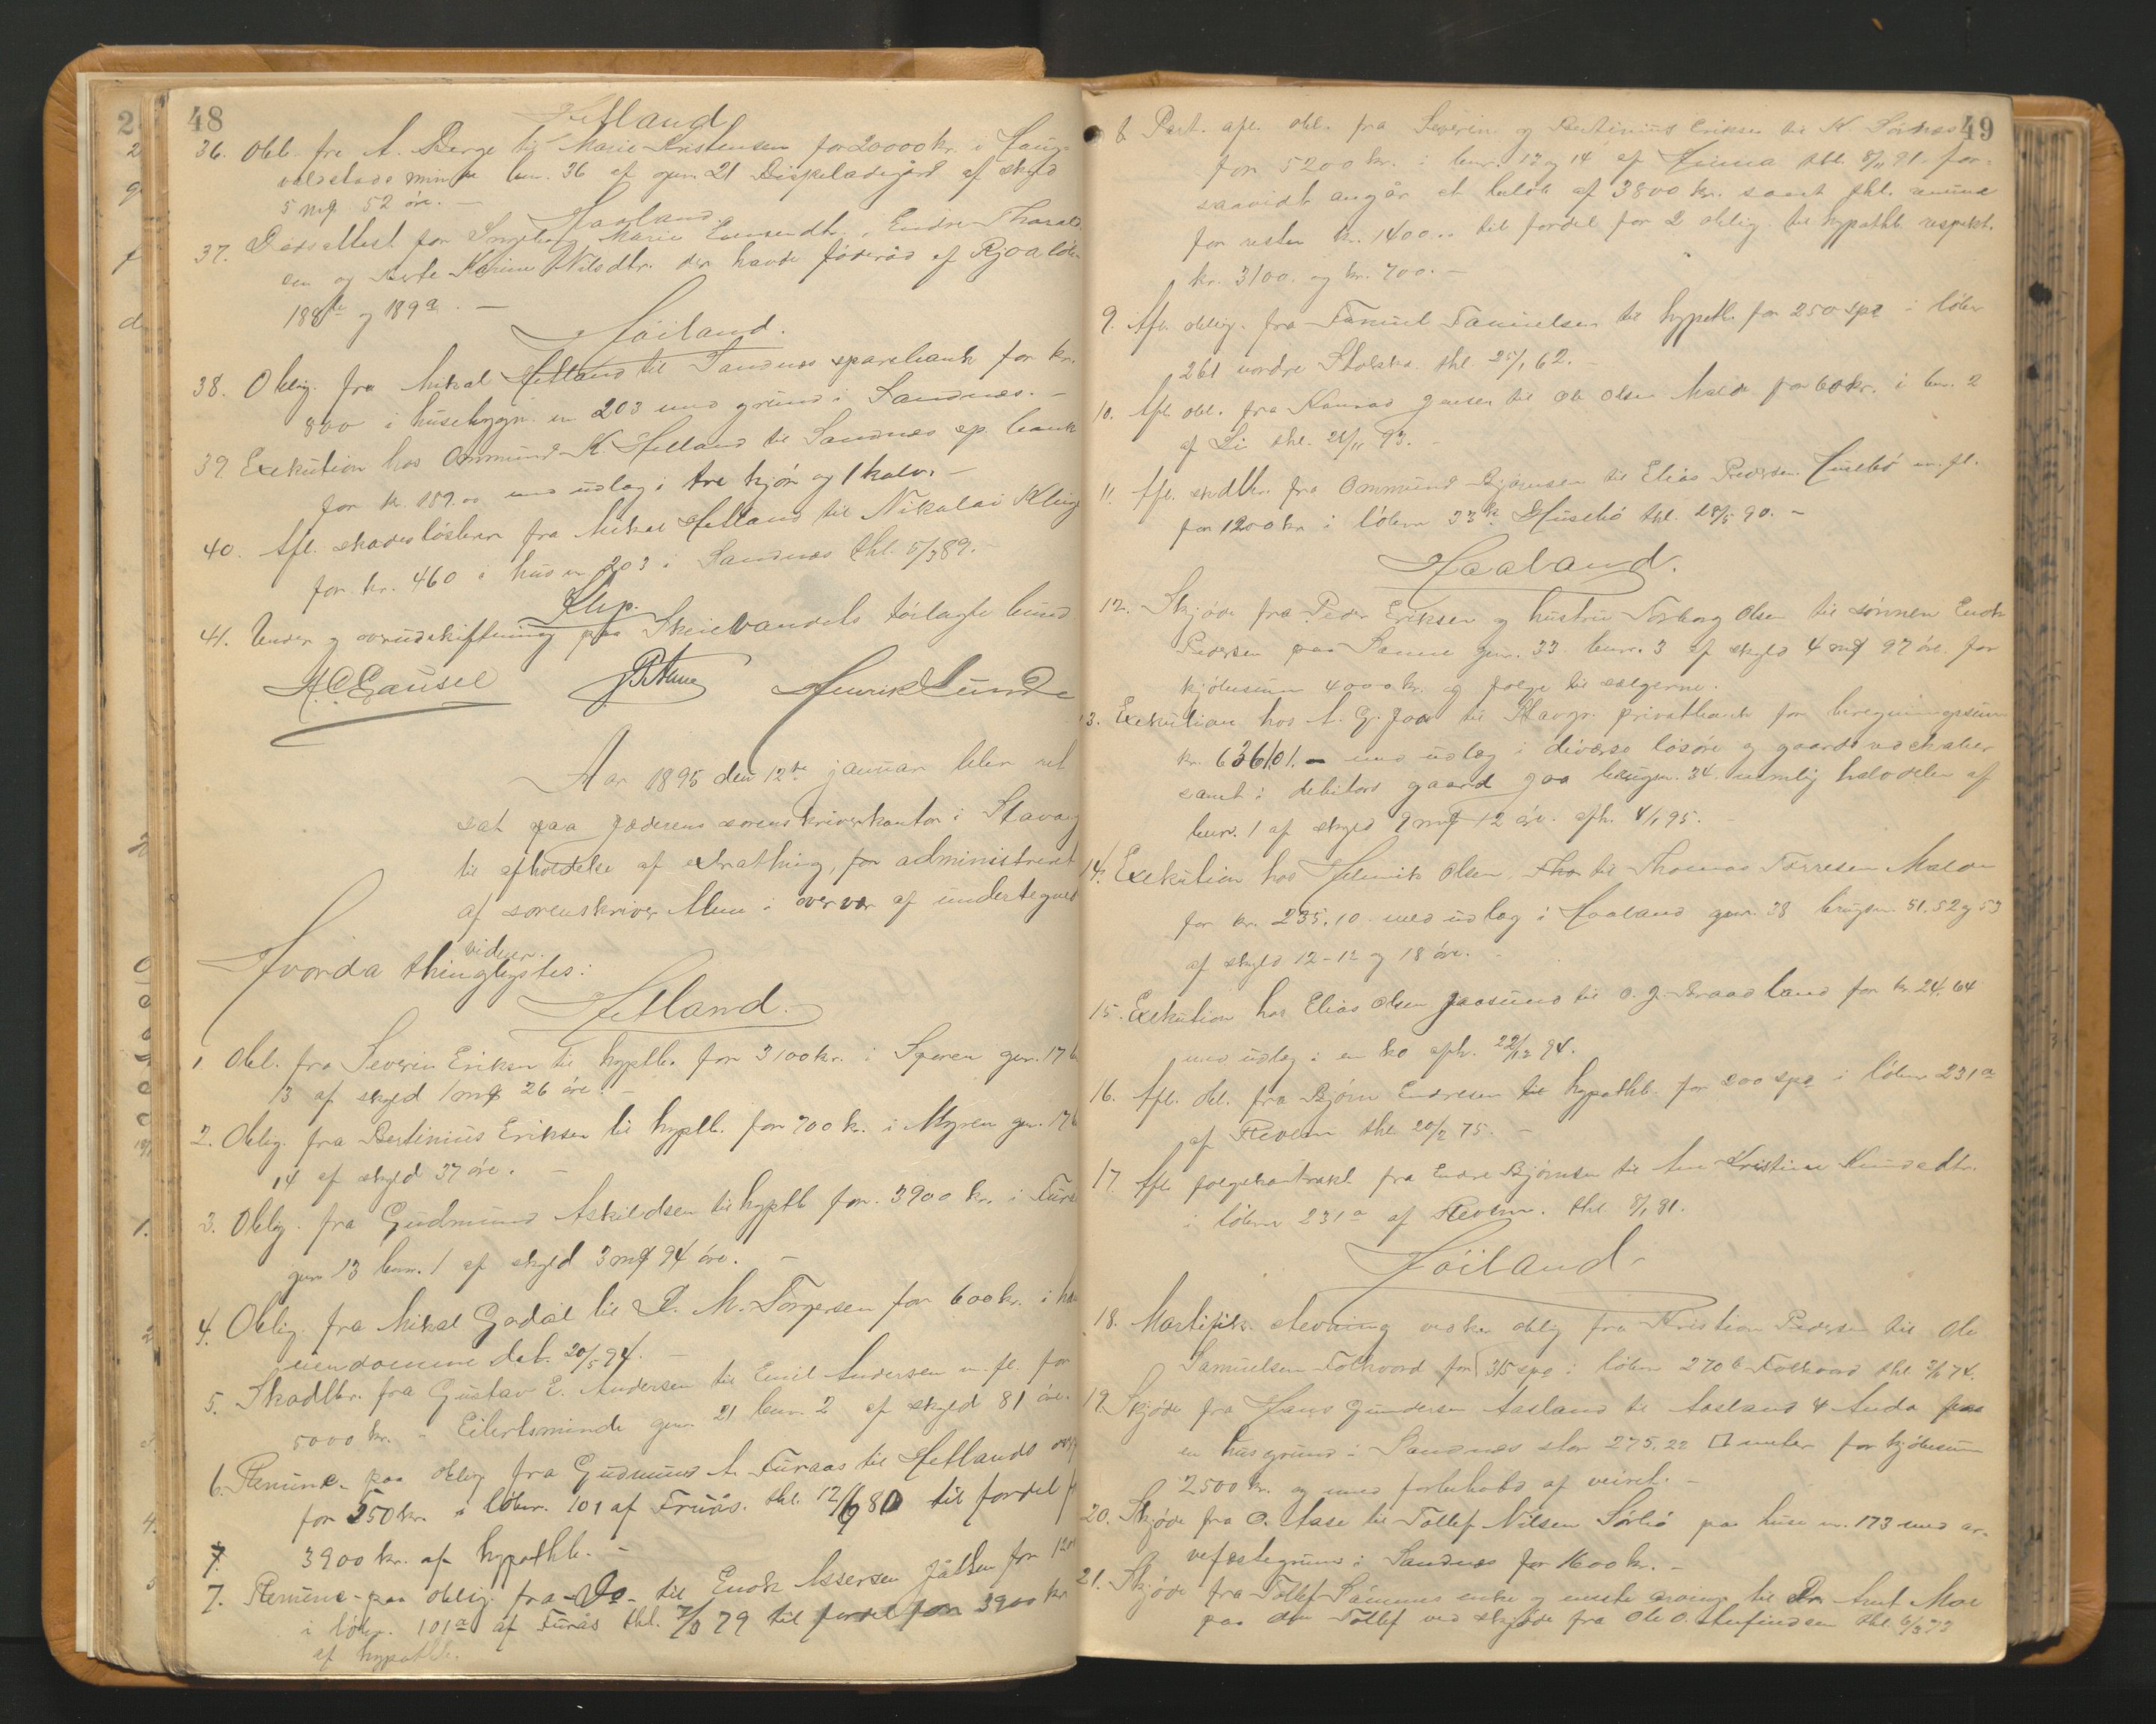 48
Hetland
36. Obl. fra A. Berge til Marie Kristensen for 20000 kr. i Haug-
valdstads minde bnr. 36 af gnr. 21 Bispeladegård af skyld
5 mʠ 52 øre. —
Haaland.
37. Dødsattest for Ingeborg Marie Evensendtr., Endre Tharald-
sen og Berte Karine Nilsdtr. der havde føderåd af Rjoa löbn
188 b og 189 a. —
Høiland.
38. Oblig. fra Mikal Hetland til Sandnes sparebank for kr.
800 i husebygn. no 203 med grund i Sandnes. —
39 Exekution hos Ommund K. Helland til Sandnes sp. bank
for kr. 189.00 med udlæg i tre kjør og 1 kalv. —
40. Afl. skadesløsbrev fra Mikal Hetland til Nikolai Kling
for kr. 460 i hus no 203 i Sandnes thl. 5/3 89. —
Klep.
41. Under og overudskiftning paa Skeievandets tørlagte bund
H. C. Gausel Henrik Lunde
Aar 1895 den 12te januar blev ret
sat paa Jæderens sorenskriverkontor i Stavang
til afholdelse af extrathing, for administreret
af sorenskriver Alme i overvær af undertegned
vidner.
Hvorda thinglystes:
Hetland.
1 Obl. fra Severin Eriksen til hyptb. for 3100 kr. i Speren gnr. 17 b
13 af skyld 1 mʠ 26 øre. —
2. Oblig. fra Bertinius Eriksen til hyptb. for 700 kr. i Myren gnr. 17 b
14 af skyld 37 øre. —
3. Oblig. fra Gudmund Askildsen til hyptb for 3900 kr. i Furå
gnr 13 bnr. 1 af skyld 3 mʠ 94 øre. —
4. Oblig. fra Mikal Gadal til P. M. Torgersen for 600 kr. i ha
eiendomme dat. 20/5 94. —
5. Skadlbr. fra Gustav E. Andersen til Emil Andersen m. fl. for
5000 kr. i Eilertsminde gnr. 21 bnr. 2 af skyld 81 øre.
6. Renunc. paa oblig fra Gudmund A. Furaas til Hetlands
for 250 kr. i löbnr. 101 af Fruås. thl. 12/6 80 til fordel f
7. 3900 kr. af hypothb. —
7. Renunc. paa oblig. fra Do - til Enok Assersen Jåtten for 120
i löbnr. 101 a af Furås thl. 79 til fordel for 3900 kr
af hypothb.
49
8 Part. afl. obl. fra Severin og Bertinius Eriksen til K. Sörnæs
for 5200 kr. i bnr. 13 og 14 af Hinna thl. 8/11 91. for-
saavidt angår et beløb af 3800 kr. samt thl. renunc
for resten kr. 1400.00 til fordel for 2 oblig. til hypothb. respekt.
kr. 3100. og kr. 700. —
9. Afl. oblig. fra Samuel Samuelsen til hypoth. for 250 spd i löbnr
261 nordre Stokka. thl. 25/1 62.
10. Afl. obl. fra Konrad Jensen til Ole Olsen Malde for 60 kr. i bnr. 2
af Li thl. 21/11 93. —
11. Afl. skdlbr. fra Ommund Bjørnsen til Elias Pedersen Husebø m. fl.
for 1200 kr. i löbnr 33 b. Husebö thl. 28/5 90. —
Haaland.
12. Skjøde fra Peder Eriksen og hustru Torborg Olsen til sønnen Enok
Pedersen paa Sømme gnr. 33 bnr. 3 af skyld 4 mʠ 97 øre. for
kjøbesum 4000 kr. og folge til sælgerne.
13. Exekution hos A. G. Joa til Stavgr. privatbank for beregningssum
kr. 6361.01. — med udlæg i diverse løsøre og gaardsredskaber
samt i debitors gaard Joa brugsnr. 34. nemlig halvdelen af
bnr. 1 af skyld 9 mʠ 12 øre. afh. 4/1 95.
14. Exekution hos Helmik Olsen, Tho til Thomas Torresen Malde
for kr. 235.10 med udlæg i Haaland gnr. 38 brugsnr. 51, 52 og 53
af skyld 12 - 12 og 18 øre. —
15. Exekution hos Elias Olsen Joasund til O. J. Braadland for kr 24.64
med udlæg i en ko afh. 22/12 94.
16. Afl. obl. fra Bjørn Endresen til hypothb. for 200 spd i löbnr 231 a
af Revem thl. 20/2 75. —
17. Afl. folgekontrakt fra Endre Bjørnsen til Ane Kristine Knudsdtr.
i löbnr 231 a af Revem. thl. 8/1 81.
Höiland.
18. Mortifik. stevning vedk. oblig fra Kristian Pedersen til Ole
Samuelsen Folkvord for 315 spd i löbnr 270 b Folkvord thl. 74.
19. Skjøde fra Hans Gundersen Aasland til Aasland & Anda paa
en husgrund i Sandnes stor 275.22 □ meter for kjøbesum
2500 kr. og med forbehold af veiret. —
20. Skjøde fra O. Aase til Tollef Nilsen Sørbø paa huse no. 173 med ar-
vefæstegrund i Sandnes for 1600 kr. —
21. Skjøde fra Tollef Sømmes enke og eneste arving til Arnt Moe
paa den Tollef ved skjøde fra Ole O. Aufindsen thl. 6/3 73